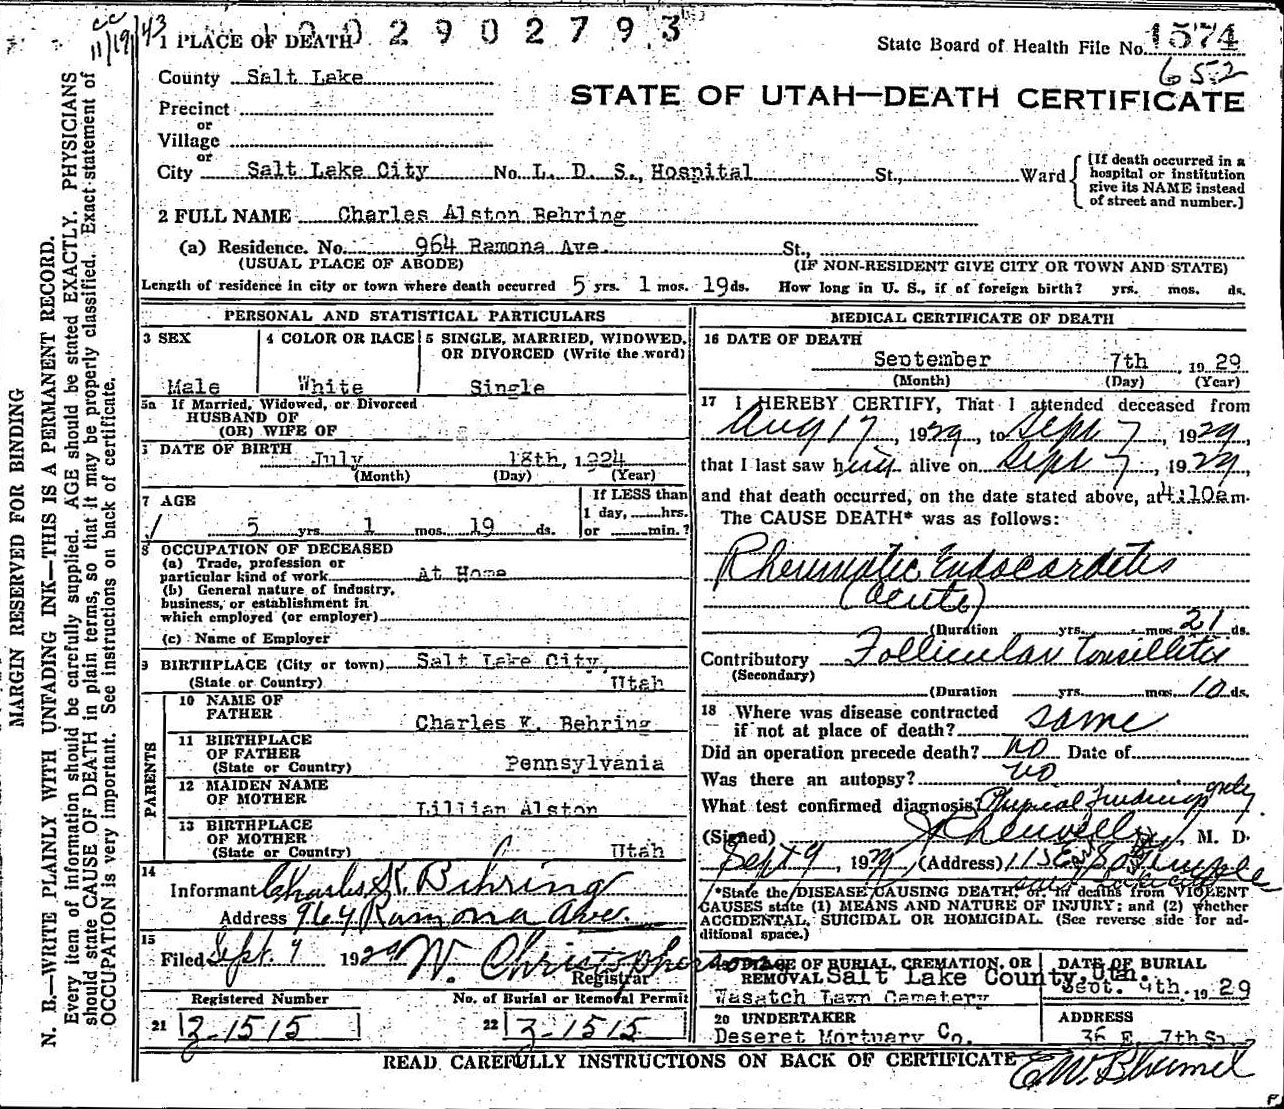 cc
11/19/43
1 0 0 2 9 0 2 7 9 3
1 PLACE OF DEATH
State Board of Health File No. 1574
652
County Salt Lake
STATE OF UTAH—DEATH CERTIFICATE
Precinct
or
Village
or
City Salt Lake City No. L. D. S., Hospital St., Ward
[If death occurred in a
hospital or institution
give its NAME instead
of street and number.]
2 FULL NAME Charles Alston Behring
(a) Residence. No. 964 Ramona Ave. St.,
(USUAL PLACE OF ABODE) (IF NON-RESIDENT GIVE CITY OR TOWN AND STATE)
Length of residence in city or town where death occurred 5 yrs. 1 mos. 19 ds. How long in U. S., if of foreign birth? yrs. mos. ds.
PERSONAL AND STATISTICAL PARTICULARS
3 SEX
Male
4 COLOR OR RACE
White
5 SINGLE, MARRIED, WIDOWED,
OR DIVORCED (Write the word)
Single
5a If Married, Widowed, or Divorced
HUSBAND OF
(OR) WIFE OF
DATE OF BIRTH
July 18th, 1924
(Month) (Day) (Year)
7 AGE
5 yrs. 1 mos. 19 ds.
If LESS than
1 day, hrs.
or min.?
8 OCCUPATION OF DECEASED
(a) Trade, profession or
particular kind of work At Home
(b) General nature of industry,
business, or establishment in
which employed (or employer)
(c) Name of Employer
9 BIRTHPLACE (City or town) Salt Lake City,
(State or Country) Utah
PARENTS
10 NAME OF
FATHER Charles K. Behring
11 BIRTHPLACE
OF FATHER
(State or Country) Pennsylvania
12 MAIDEN NAME
OF MOTHER Lillian Alston
13 BIRTHPLACE
OF MOTHER
(State or Country) Utah
14
Informant Charles K. Behring
Address 964 Ramona Ave.
15
Filed Sept. 9 1929 W. Christopherson
Registrar
Registered Number
21 Z-1515
No. of Burial or Removal Permit
22 Z-1515
MEDICAL CERTIFICATE OF DEATH
16 DATE OF DEATH
September 7th, 1929
(Month) (Day) (Year)
17 I HEREBY CERTIFY, That I attended deceased from
Aug 17, 1929, to Sept 7, 1929,
that I last saw him alive on Sept 7, 1929,
and that death occurred, on the date stated above, at 4:10am.
The CAUSE DEATH* was as follows:
Rheumatic Endocarditis
(acute)
(Duration yrs. mos. 21 ds.
Contributory Follicular tonsillitis
(Secondary)
(Duration yrs. mos. 10 ds.
18 Where was disease contracted
if not at place of death? same
Did an operation precede death? no Date of
Was there an autopsy? no
What test confirmed diagnosis? Physical Findings only
(Signed) M. D.
Sept 9, 1929, (Address) 115 E. So. Temple
*State the DISEASE CAUSING DEATH, or in deaths from VIOLENT
CAUSES state (1) MEANS AND NATURE OF INJURY; and (2) whether
ACCIDENTAL, SUICIDAL OR HOMICIDAL. (See reverse side for ad-
ditional space.)
19 PLACE OF BURIAL, CREMATION, OR
REMOVAL Salt Lake County, Utah.
Wasatch Lawn Cemetery
DATE OF BURIAL
Sept. 9th. 1929
20 UNDERTAKER
Deseret Mortuary Co.
ADDRESS
36 E. 7th So.
READ CAREFULLY INSTRUCTIONS ON BACK OF CERTIFICATE
MARGIN RESERVED FOR BINDING
N. B.—WRITE PLAINLY WITH UNFADING INK—THIS IS A PERMANENT RECORD.
Every item of information should be carefully supplied. AGE should be stated EXACTLY. PHYSICIANS
should state CAUSE OF DEATH in plain terms, so that it may be properly classified. Exact statement of
OCCUPATION is very important. See instructions on back of certificate.